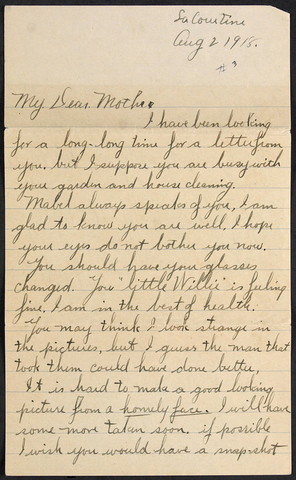 La Courtine
Aug 2 1918.
#3
My Dear Mother
I have been looking
for a long-long time for a letter from
you, but I suppose you are busy with
your garden and house cleaning.
Mabel always speaks of you, I am
glad to know you are well, I hope
your eyes do not bother you now.
You should have your glasses
changed. "You" little Willie" is feeling
fine, I am in the best of health.
You may think I look strange in
the pictures, but I guess the man that
took them could have done better,
It is hard to make a good looking
picture from a homely face. I will have
some more taken soon, if possible
I wish you would have a snap-shot